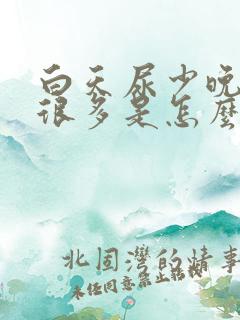 白天尿少晚
很多是怎麼
北固灣的情事
未经同意禁止转载